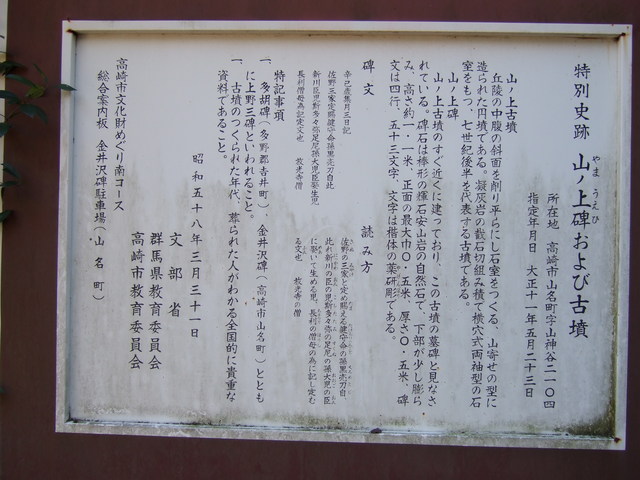 特別史跡 山ノ上碑および古墳
やま うえひ
所在地 高崎市山名町字山神谷二一〇四
指定年月日 大正十一年五月二十三日
山ノ上古墳
丘陵の中腹の斜面を削り平らにし石室をつくる、山寄せの型に
造られた円墳である。凝灰岩の截石切組み積で横穴式両袖型の石
室をもつ、七世紀後半を代表する古墳である。
山ノ上碑
山ノ上古墳のすぐ近くに建っており、この古墳の墓碑と見なさ
れている。碑石は棒形の輝石安山岩の自然石で、下部が少し膨ら
み、高さ約一・一米、正面の最大巾〇・五米、厚さ〇・五米、碑
文は四行、五十三文字、文字は楷体の薬研彫である。
碑文
辛己歳集月三日記
佐野三家定賜健守命孫黒売刀自此
新川臣児斯多々弥足尼孫大児臣娶生児
長利僧母為記定文也 放光寺僧
読み方
佐野の三家と定め賜える健守命の孫黒売刀自
此れ新川の臣の児斯多々弥の足尼の孫大児の臣
に娶いて生める児、長利の僧母の為に記し定む
る文也 放光寺の僧
特記事項
一、多胡碑(多野郡吉井町)、金井沢碑(高崎市山名町)ととも
に上野三碑といわれること。
一、古墳のつくられた年代、葬られた人がわかる全国的に貴重な
資料であること。
昭和五十八年三月三十一日
文部省
群馬県教育委員会
高崎市教育委員会
高崎市文化財めぐり南コース
総合案内板 金井沢碑駐車場(山名町)